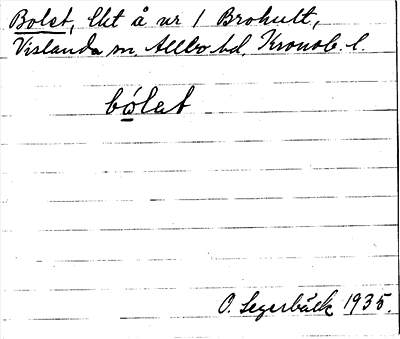 Bolet, lkt å nr 1 Brohult,
Vislanda sn, Allbo hd, Kronob. l.
bólet
O. Segerbäck 1935.